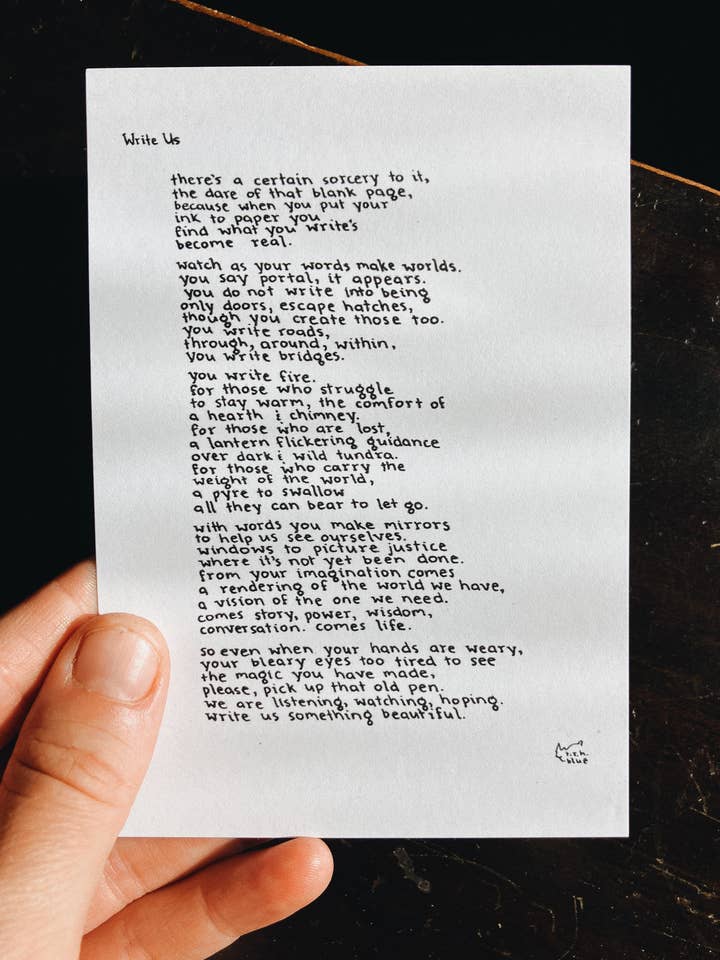 Write Us
there's a certain sorcery to it,
the dare of that blank page,
because when you put your
ink to paper you
find what you write's
become real.
watch as your words make worlds.
you say portal, it appears.
you do not write into being
only doors, escape hatches,
though you create those too.
you write roads,
through, around, within,
you write bridges.
you write fire.
for those who struggle
to stay warm, the comfort of
a hearth & chimney.
for those who are lost,
a lantern flickering guidance
over dark & wild tundra.
for those who carry the
weight of the world,
a pyre to swallow
all they can bear to let go.
with words you make mirrors
to help us see ourselves.
windows to picture justice
where it's not yet been done.
from your imagination comes
a rendering of the world we have,
a vision of the one we need.
comes story, power, wisdom,
conversation. comes life.
so even when your hands are weary,
your bleary eyes too tired to see
the magic you have made,
please, pick up that old pen.
we are listening, watching, hoping.
write us something beautiful.
r.r.h.
blue